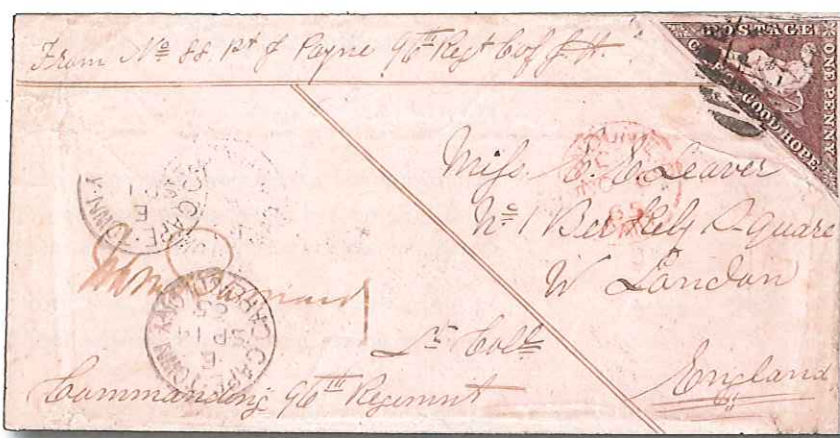 From No 88 Pt J Payne 96th Regt C of G. H.
POSTAGE
ONE PENNY
GOOD HOPE
Miss C. E. Leaver
No 1 Berkely Square
W London
England
CAPE TOWN
CAPE TOWN
SP 14
65
Lt Coll
Commanding 96th Regiment